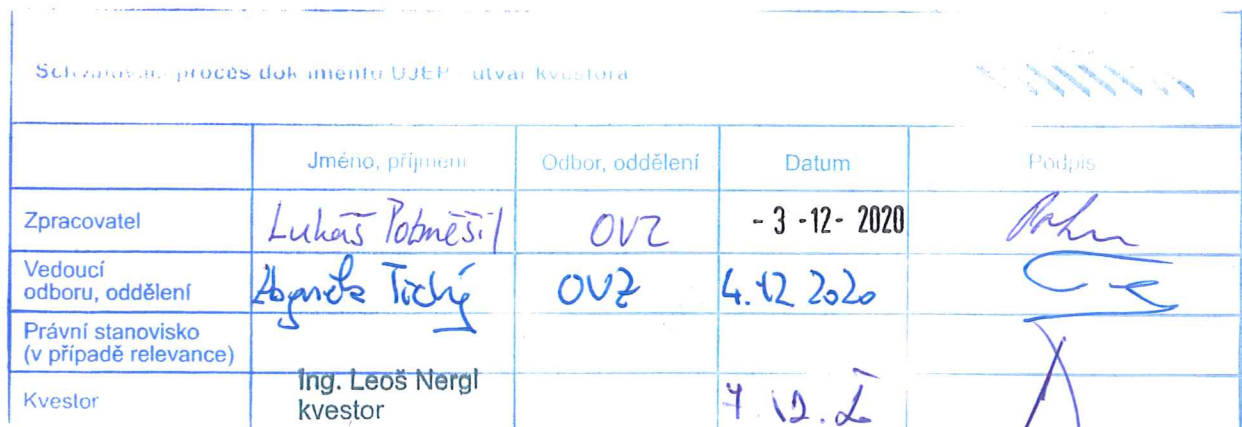 Schvalovací proces dokumentu UJEP - útvar kvestora
Jméno, příjmení Odbor, oddělení Datum Podpis
Zpracovatel Lukáš Potměšil OVZ - 3 -12- 2020
Vedoucí
odboru, oddělení Tichý OVZ 4.12 2020
Právní stanovisko
(v případě relevance)
Ing. Leoš Nergl
Kvestor kvestor 7.12.